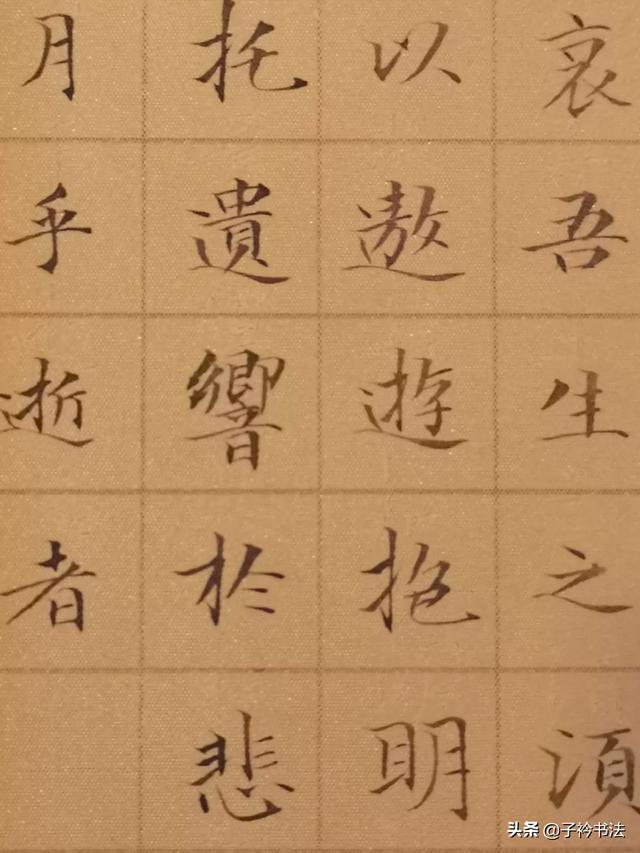 哀吾生之須
以遨遊抱明
托遺響於悲
月乎逝者
头条 @子衿书法